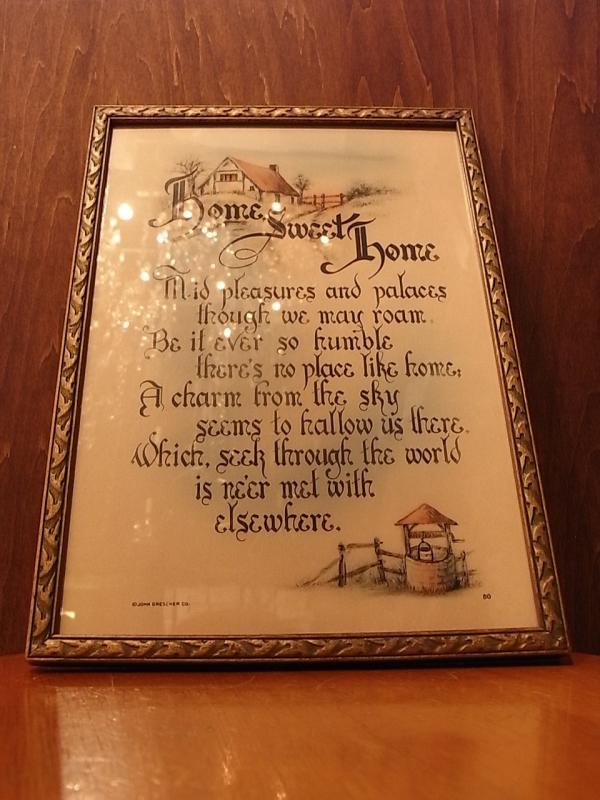 Home Sweet Home
Mid pleasures and palaces
though we may roam
Be it ever so humble
there's no place like home;
A charm from the sky
seems to hallow us there,
Which, seek through the world
is ne'er met with
elsewhere.
©JOHN DRESCHER CO.
80